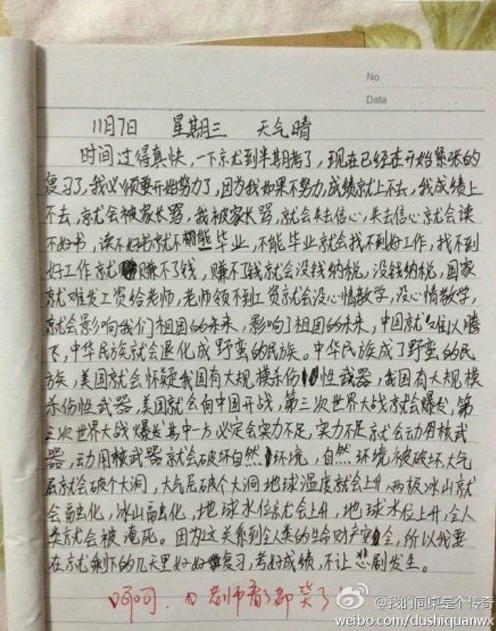 No.
Data
11月7日 星期三 天气晴
时间过得真快,一下就到半期考了,现在已经在开始紧张的
复习了,我必须要开始努力了,因为我如果不努力,成绩就上不去,我成绩上
不去,就会被家长骂,我被家长骂,就会失去信心,失去信心就会读
不好书,读不好书就不能毕业,不能毕业就会找不到好工作,找不到
好工作就赚不了钱,赚不了钱就会没钱纳税,没钱纳税,国家
就难发工资给老师,老师领不到工资就会没心情教学,没心情教学,
就会影响我们祖国的未来,影响了祖国的未来,中国就难以腾
飞,中华民族就会退化成野蛮的民族。中华民族成了野蛮的民
族,美国就会怀疑我国有大规模杀伤性武器,我国有大规模
杀伤性武器,美国就会向中国开战,第三次世界大战就会爆发,第
三次世界大战爆发其中一方必定会实力不足,实力不足就会动用核武
器,动用核武器就会破坏自然环境,自然环境被破坏,大气
层就会破个大洞,大气层破个大洞地球温度就会上升,两极冰山就
会融化,冰山融化,地球水位就会上升,地球水位上升,全人
类就会被淹死。因为这关系到全人类的生命财产安全,所以我要
在就剩下的几天里好好复习,考好成绩,不让悲剧发生。
呵呵。 老师看了都笑了!
@我的同桌是个传奇
weibo.com/dushiquanwx